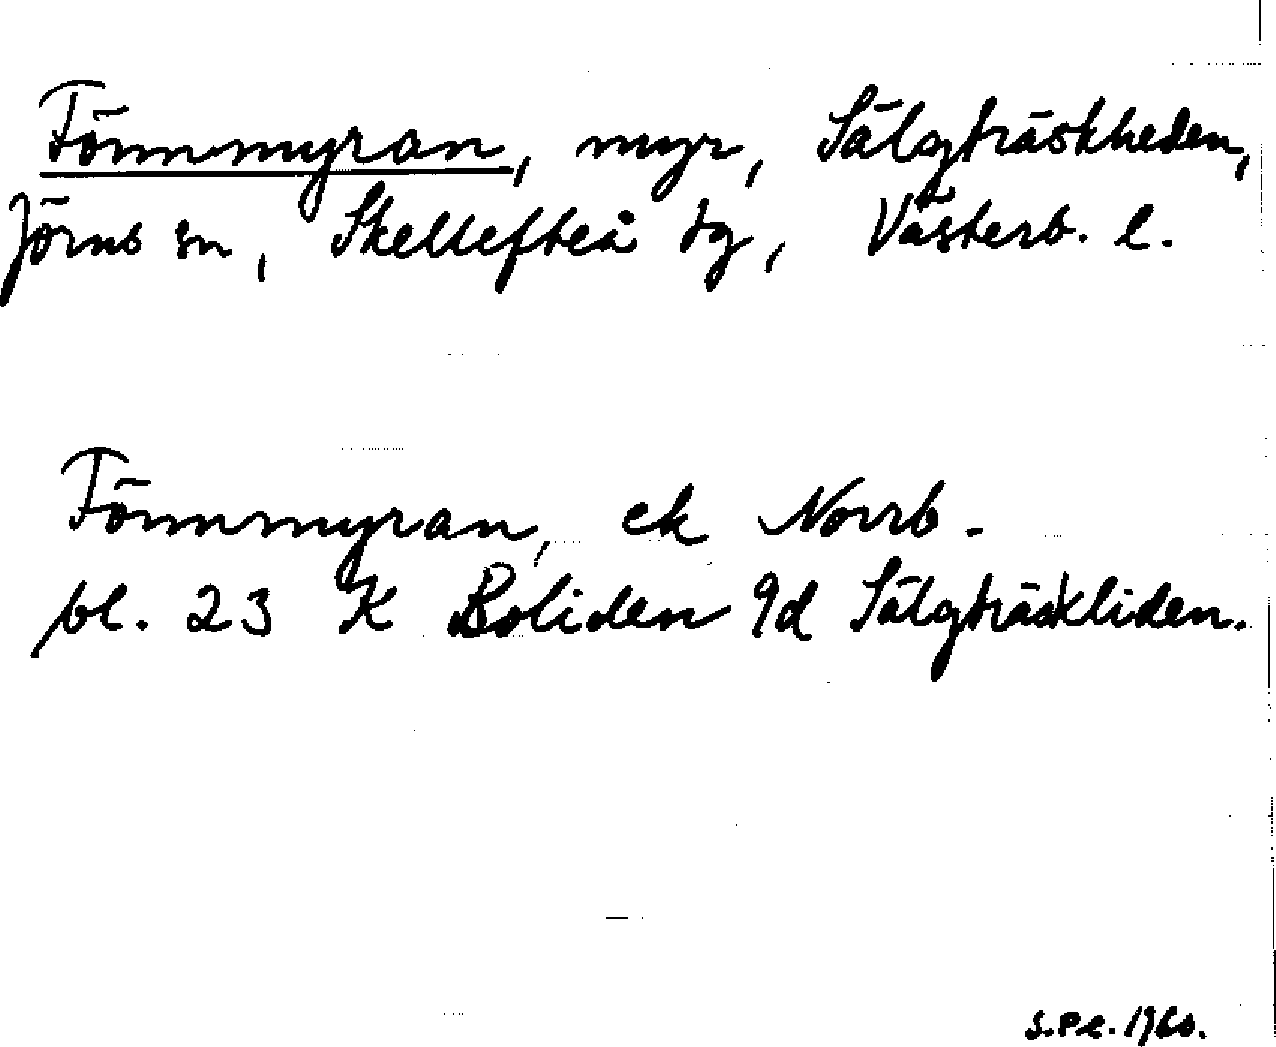 Tömmmyran, myr, Sälgträskheden,
Jörns sn, Skellefteå tg, Västerb. l.
Tömmmyran, ek Norrb.
bl. 23 K Boliden 9d Sälgträskliden.
S.P.e. 1960.